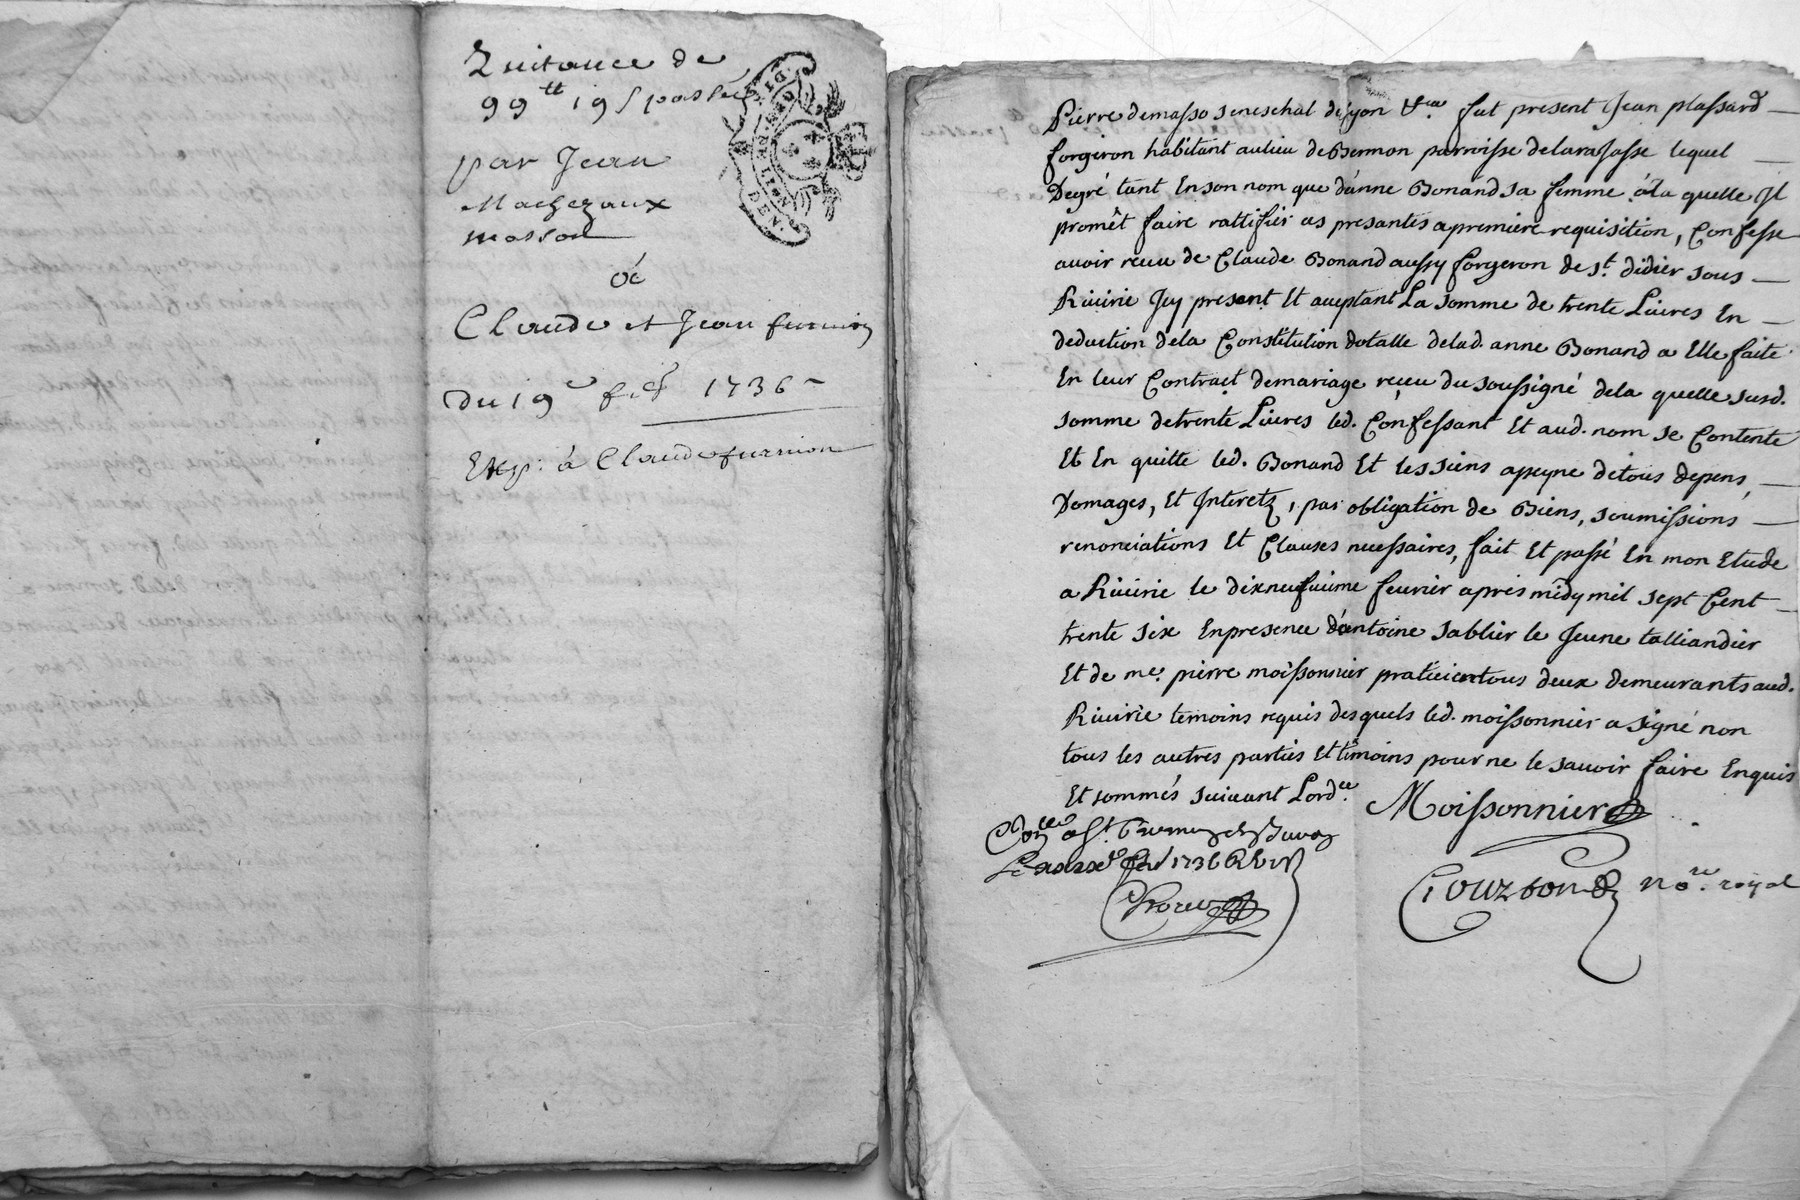 Quitance de
99 tt 19 s passée
par Jean
Machezaux
masson
à
Claude et Jean furnion
du 19e fév 1736
Exp: à Claude furnion
GE. DE LION
DEN.
Pierre demasso seneschal de lyon &ca fut present Jean plassard
forgeron habitant au lieu de Bermon parroisse delarajasse lequel
Degré tant En son nom que d'anne Bonand sa femme à la quelle Jl
promêt faire rattifier ces presantes a premiere requisition, Confesse
auoir reçeu de Claude Bonand aussy forgeron de st. didier sous
Riuirie Jcy present Et acceptant La somme de trente Liures En
deduction dela Constitution dotalle delad. anne Bonand a Elle faite
En leur Contract demariage reçeu du soussigné dela quelle susd.
somme detrente Liures led. Confessant Et aud. nom se Contente
Et En quitte led. Bonand Et les siens apeyne detous depens,
Domages, Et Interetz, par obligation de Biens, soumissions
renonciations Et Clauses necessaires, fait Et passé En mon Etude
a Riuirie le dixneufuiéme feurier apres midy mil sept Cent
trente six En presence d'antoine sablier le Jeune talliandier
Et de me. pierre moissonnier praticien tous deux demeurants aud.
Riuirie temoins requis desquels led. moissonnier a signé non
tous les autres parties Et témoins pour ne le sauoir faire Enquis
Et sommés suiuant Lordce.
Moissonnier
Conllé a St
1736
nore. royal